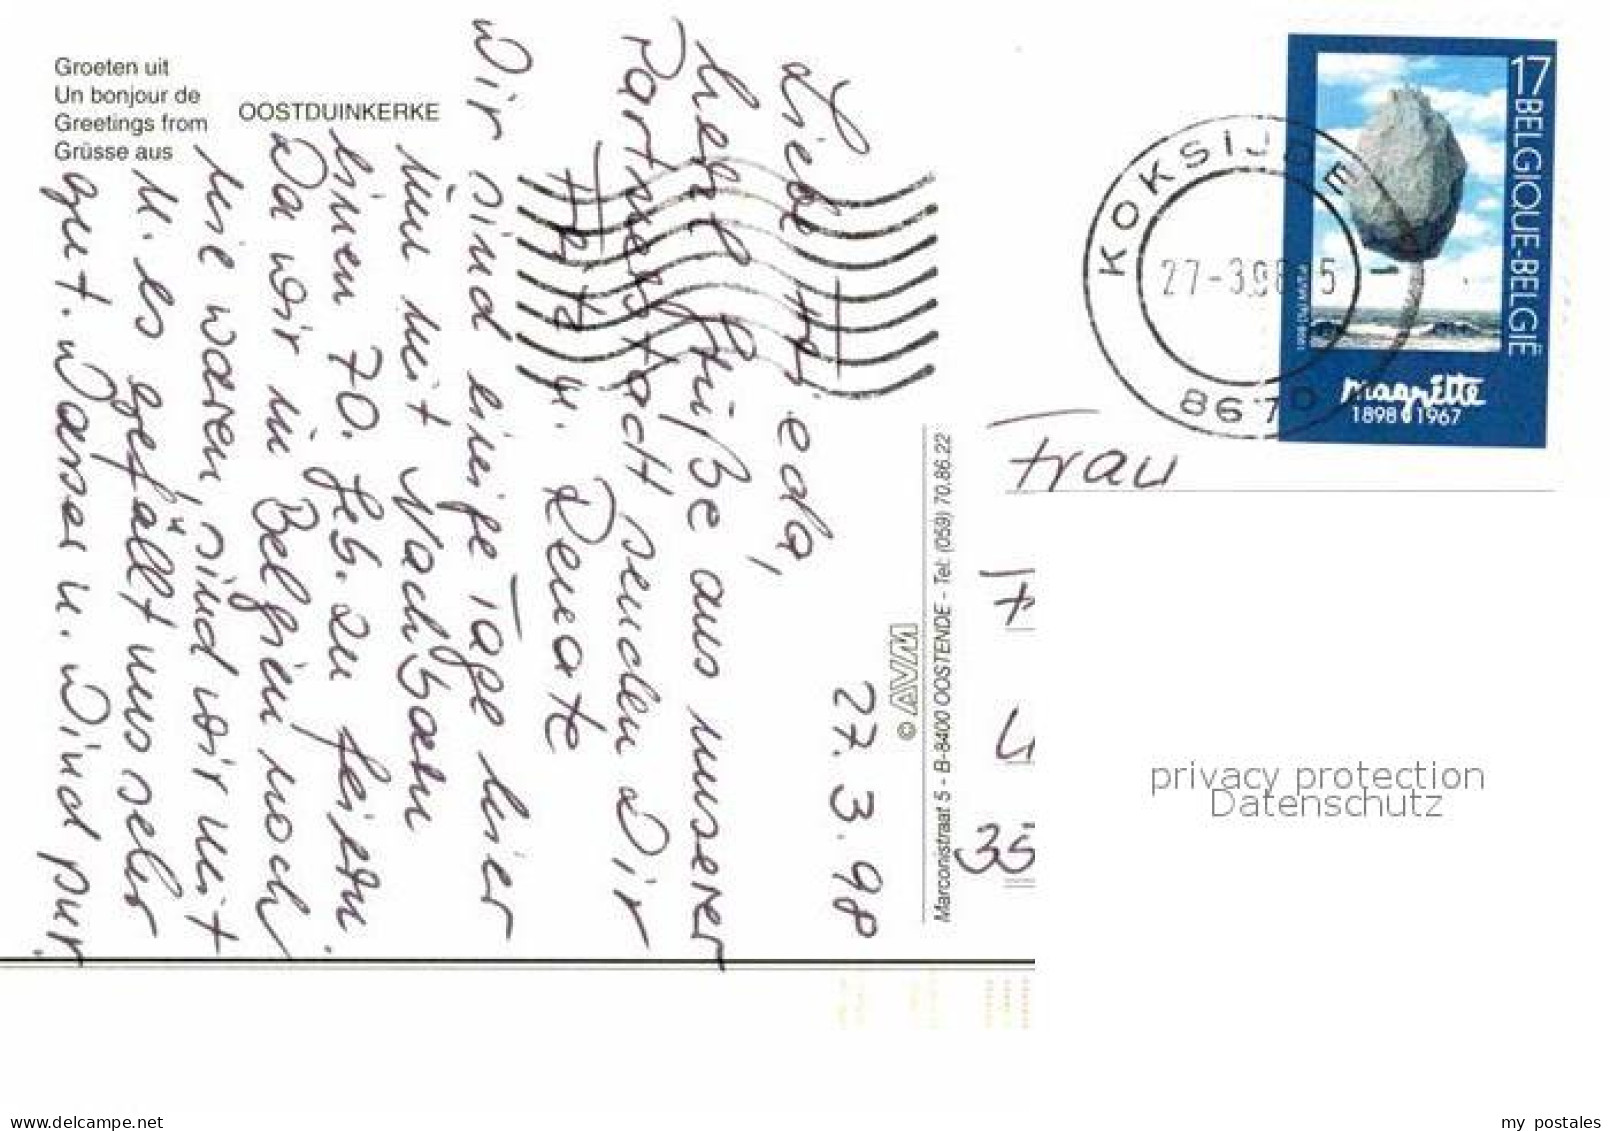 Groeten uit
Un bonjour de
Greetings from
Grüsse aus
OOSTDUINKERKE
27.3.98
Liebe
herzl. Grüße aus unserer
Partnerstadt senden Dir
u. Renate
Wir sind einige Tage hier
um mit Nachbarn
einen 70. Geb. zu feiern.
Da wir in Belgien noch
nie waren, sind wir mit
u. es gefällt uns sehr
gut. Wasser u. Wind pur.
© AVM
Marconistraat 5 - B-8400 OOSTENDE - Tel: (059) 70.86.22
KOKSIJDE 1
27-3.98
8670
17 BELGIQUE-BELGIË
magritte
1898 1967
Frau
35
privacy protection
Datenschutz
www.delcampe.net
my postales